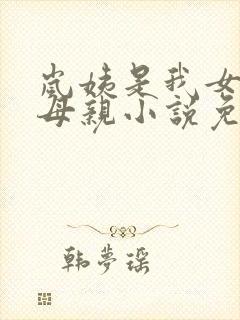 岚姨是我女
母亲小说免
韩梦瑶